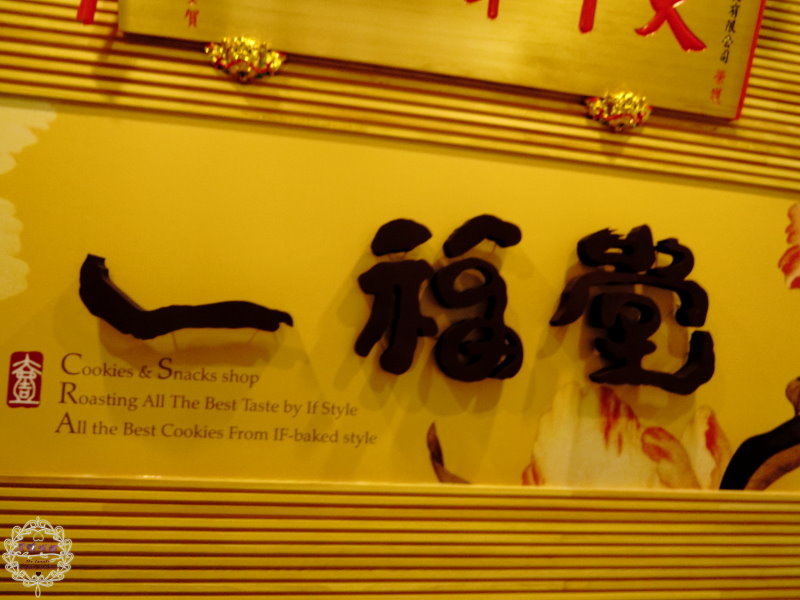 有限公司 榮獲
一福堂
Cookies & Snacks shop
Roasting All The Best Taste by If Style
All the Best Cookies From IF-baked style